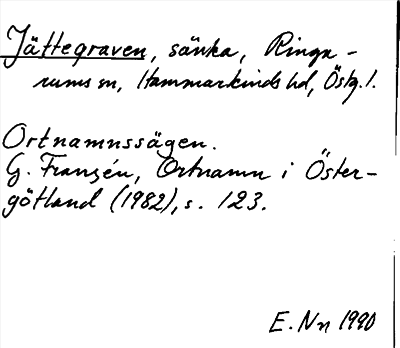 Jättegraven, sänka, Ringa-
rums sn, Hammarkinds hd, Östg. l.
Ortnamnssägen.
G. Franzén, Ortnamn i Öster-
götland (1982), s. 123.
E. Nn 1990